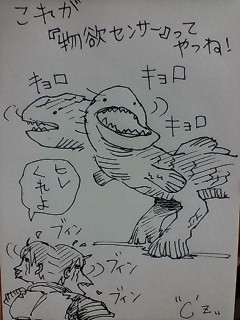 これが
『物欲センサー』って
やつね!
キョロ
キョロ
キョロ
ヒレ
くれよ
ブイン
ブイン
ブイン
"C'z"